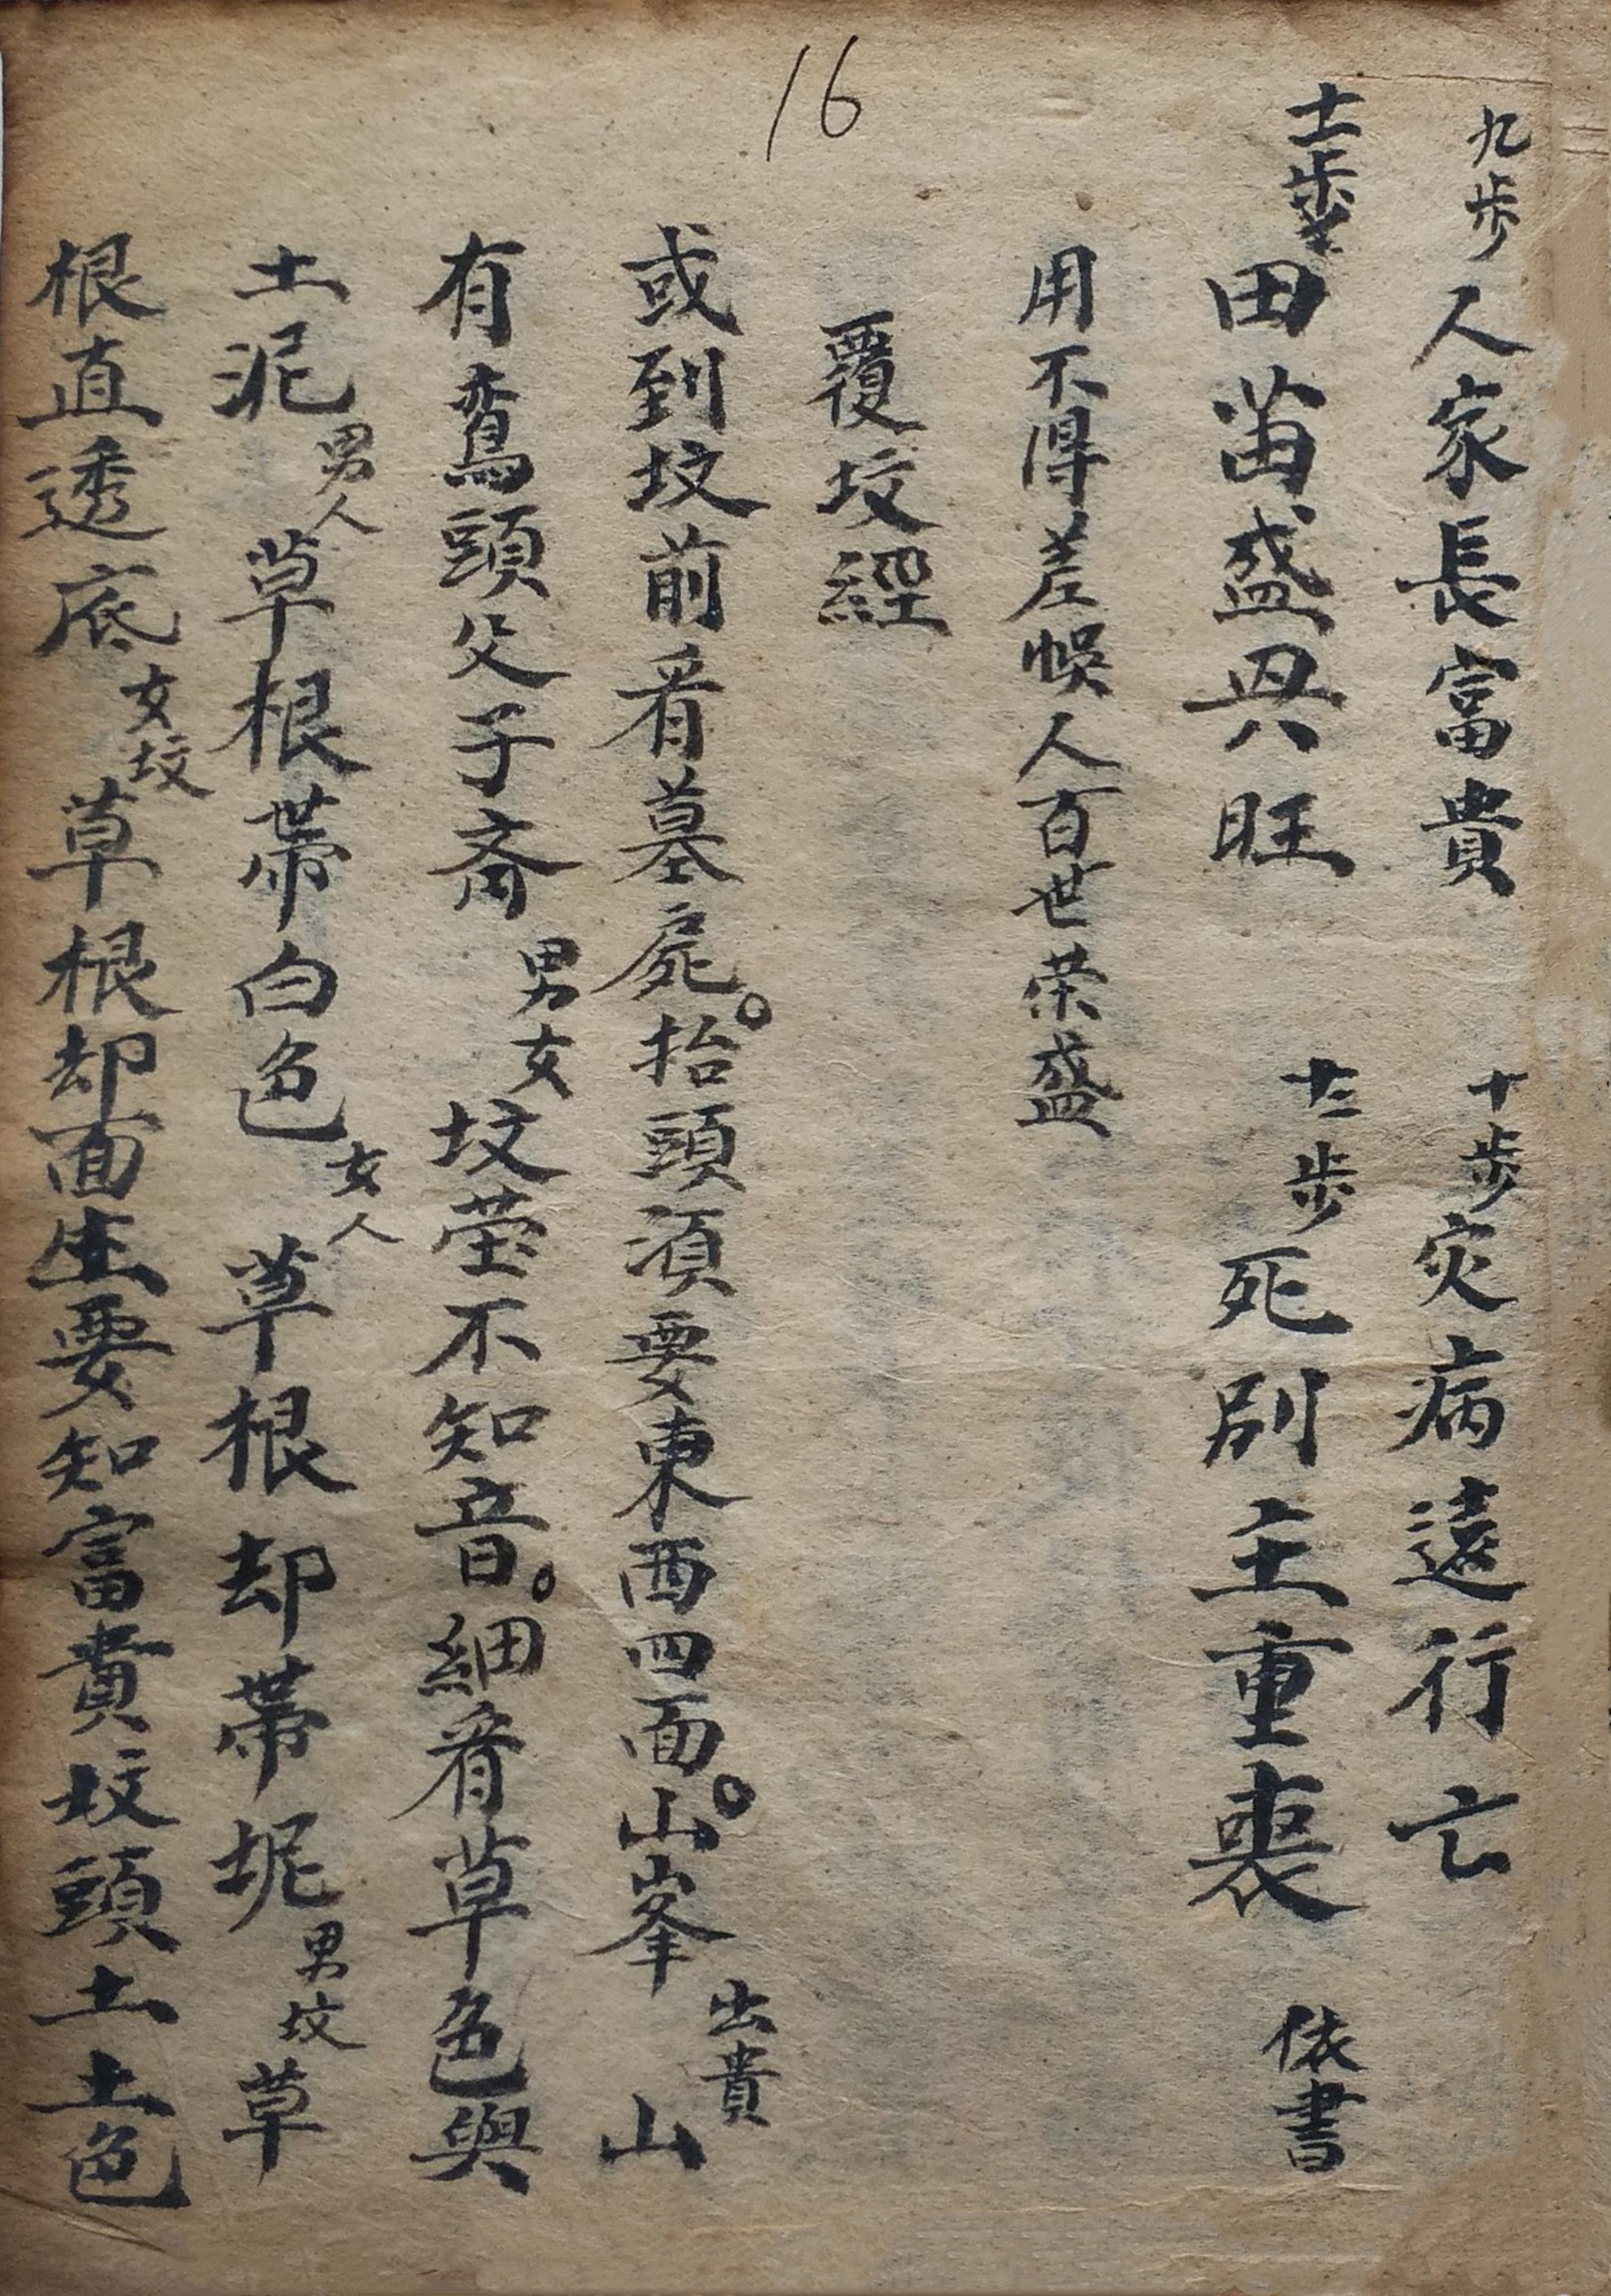 16
九步人家長富貴 十步灾病遠行亡
十一步田苗盛興旺 十二步死别主重喪 依書
用不得差悞人百世荣盛
覆坟經
或到坟前看墓屍。抬頭須要東西四面。山峯出貴山
有鸞頭父子斎男女坟茔不知音。細看草色與
土泥男人草根帶白色女人草根却帶坭男坟草
根直透底女坟草根却面生要知富貴坟頭土土色